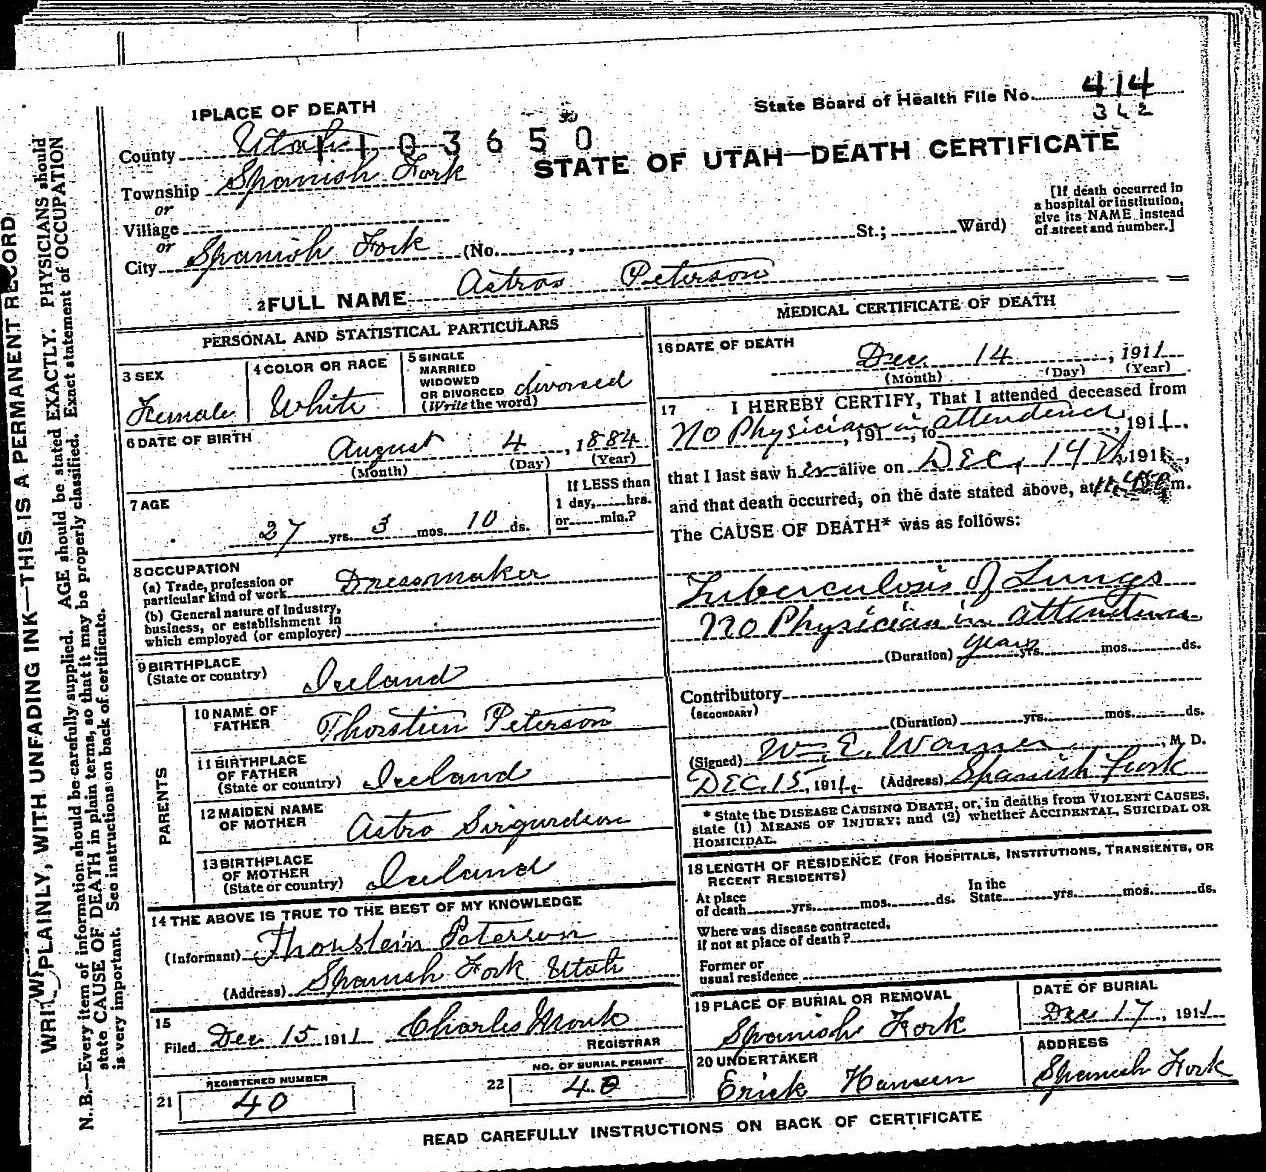 1 PLACE OF DEATH
State Board of Health File No. 414
362
County Utah
1103650
30
STATE OF UTAH—DEATH CERTIFICATE
Township Spanish Fork
or
Village
or
City Spanish Fork (No. , St.; Ward)
[If death occurred in
a hospital or institution,
give its NAME instead
of street and number.]
2 FULL NAME Astros Peterson
PERSONAL AND STATISTICAL PARTICULARS
3 SEX
Female
4 COLOR OR RACE
White
5 SINGLE
MARRIED
WIDOWED
OR DIVORCED
(Write the word)
divorsed
6 DATE OF BIRTH
August 4, 1884
(Month) (Day) (Year)
7 AGE
27 yrs. 3 mos. 10 ds.
If LESS than
1 day, hrs.
or min.?
8 OCCUPATION
(a) Trade, profession or
particular kind of work Dressmaker
(b) General nature of Industry,
business, or establishment in
which employed (or employer)
9 BIRTHPLACE
(State or country) Iceland
PARENTS
10 NAME OF
FATHER Thorstien Peterson
11 BIRTHPLACE
OF FATHER
(State or country) Iceland
12 MAIDEN NAME
OF MOTHER Astro Sirgurdson
13 BIRTHPLACE
OF MOTHER
(State or country) Iceland
14 THE ABOVE IS TRUE TO THE BEST OF MY KNOWLEDGE
(Informant) Thorstein Peterson
(Address) Spanish Fork Utah
15
Filed Dec 15 1911 Charles Monk
REGISTRAR
REGISTERED NUMBER
21 40
NO. OF BURIAL PERMIT
22 40
MEDICAL CERTIFICATE OF DEATH
16 DATE OF DEATH
Dec 14, 1911
(Month) (Day) (Year)
17 I HEREBY CERTIFY, That I attended deceased from
No Physician in attendence, 191 , to , 1911,
that I last saw her alive on Dec, 14th, 1911,
and that death occurred, on the date stated above, at m.
The CAUSE OF DEATH* was as follows:
Tuberculosis of Lungs
No Physician in attendence
(Duration) years yrs. mos. ds.
Contributory
(SECONDARY)
(Duration) yrs. mos. ds.
(Signed) Wm E. Warner, M. D.
DEC, 15, 1911. (Address) Spanish Fork
* State the DISEASE CAUSING DEATH, or, in deaths from VIOLENT CAUSES,
state (1) MEANS OF INJURY; and (2) whether ACCIDENTAL, SUICIDAL OR
HOMICIDAL.
18 LENGTH OF RESIDENCE (FOR HOSPITALS, INSTITUTIONS, TRANSIENTS, OR
RECENT RESIDENTS)
At place
of death yrs. mos. ds.
In the
State yrs. mos. ds.
Where was disease contracted,
if not at place of death?
Former or
usual residence
19 PLACE OF BURIAL OR REMOVAL
Spanish Fork
DATE OF BURIAL
Dec 17, 1911
20 UNDERTAKER
Erick Hansen
ADDRESS
Spanish Fork
READ CAREFULLY INSTRUCTIONS ON BACK OF CERTIFICATE
WRITE PLAINLY, WITH UNFADING INK—THIS IS A PERMANENT RECORD
N. B.—Every item of information should be carefully supplied. AGE should be stated EXACTLY. PHYSICIANS should
state CAUSE OF DEATH in plain terms, so that it may be properly classified. Exact statement of OCCUPATION
is very important. See instructions on back of certificate.